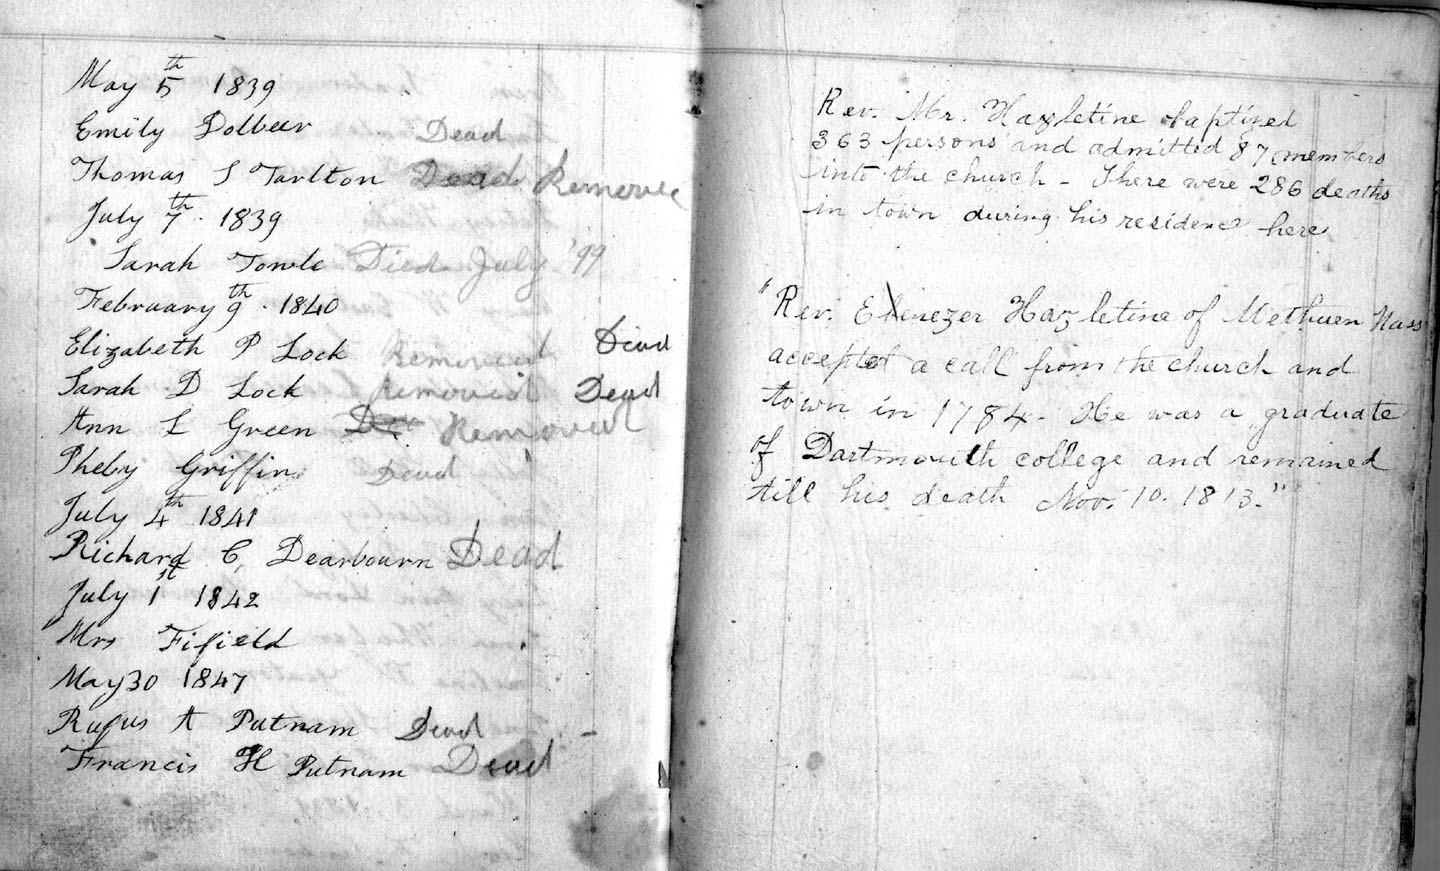 May 5th 1839
Emily Dolbeer Dead
Thomas S Tarlton Dead Remove
July 7th 1839
Sarah Towle Died July '99
February 9th 1840
Elizabeth P Lock Removed Dead
Sarah D Lock Removed Dead
Ann L Green Removed
Pheby Griffin Dead
July 4th 1841
Richard C, Dearbourn Dead
July 1st 1842
Mrs Fifield
May 30 1847
Rufus A Putnam Dead -
Francis H Putnam Dead
Rev. Mr. Hazletine baptized
363 persons and admitted 87 members
into the church - There were 286 deaths
in town during his residence here
"Rev. Ebenezer Hazletine of Methuen Mass
accepted a call from the church and
town in 1784. He was a graduate
of Dartmouth college and remained
till his death Nov. 10. 1813."